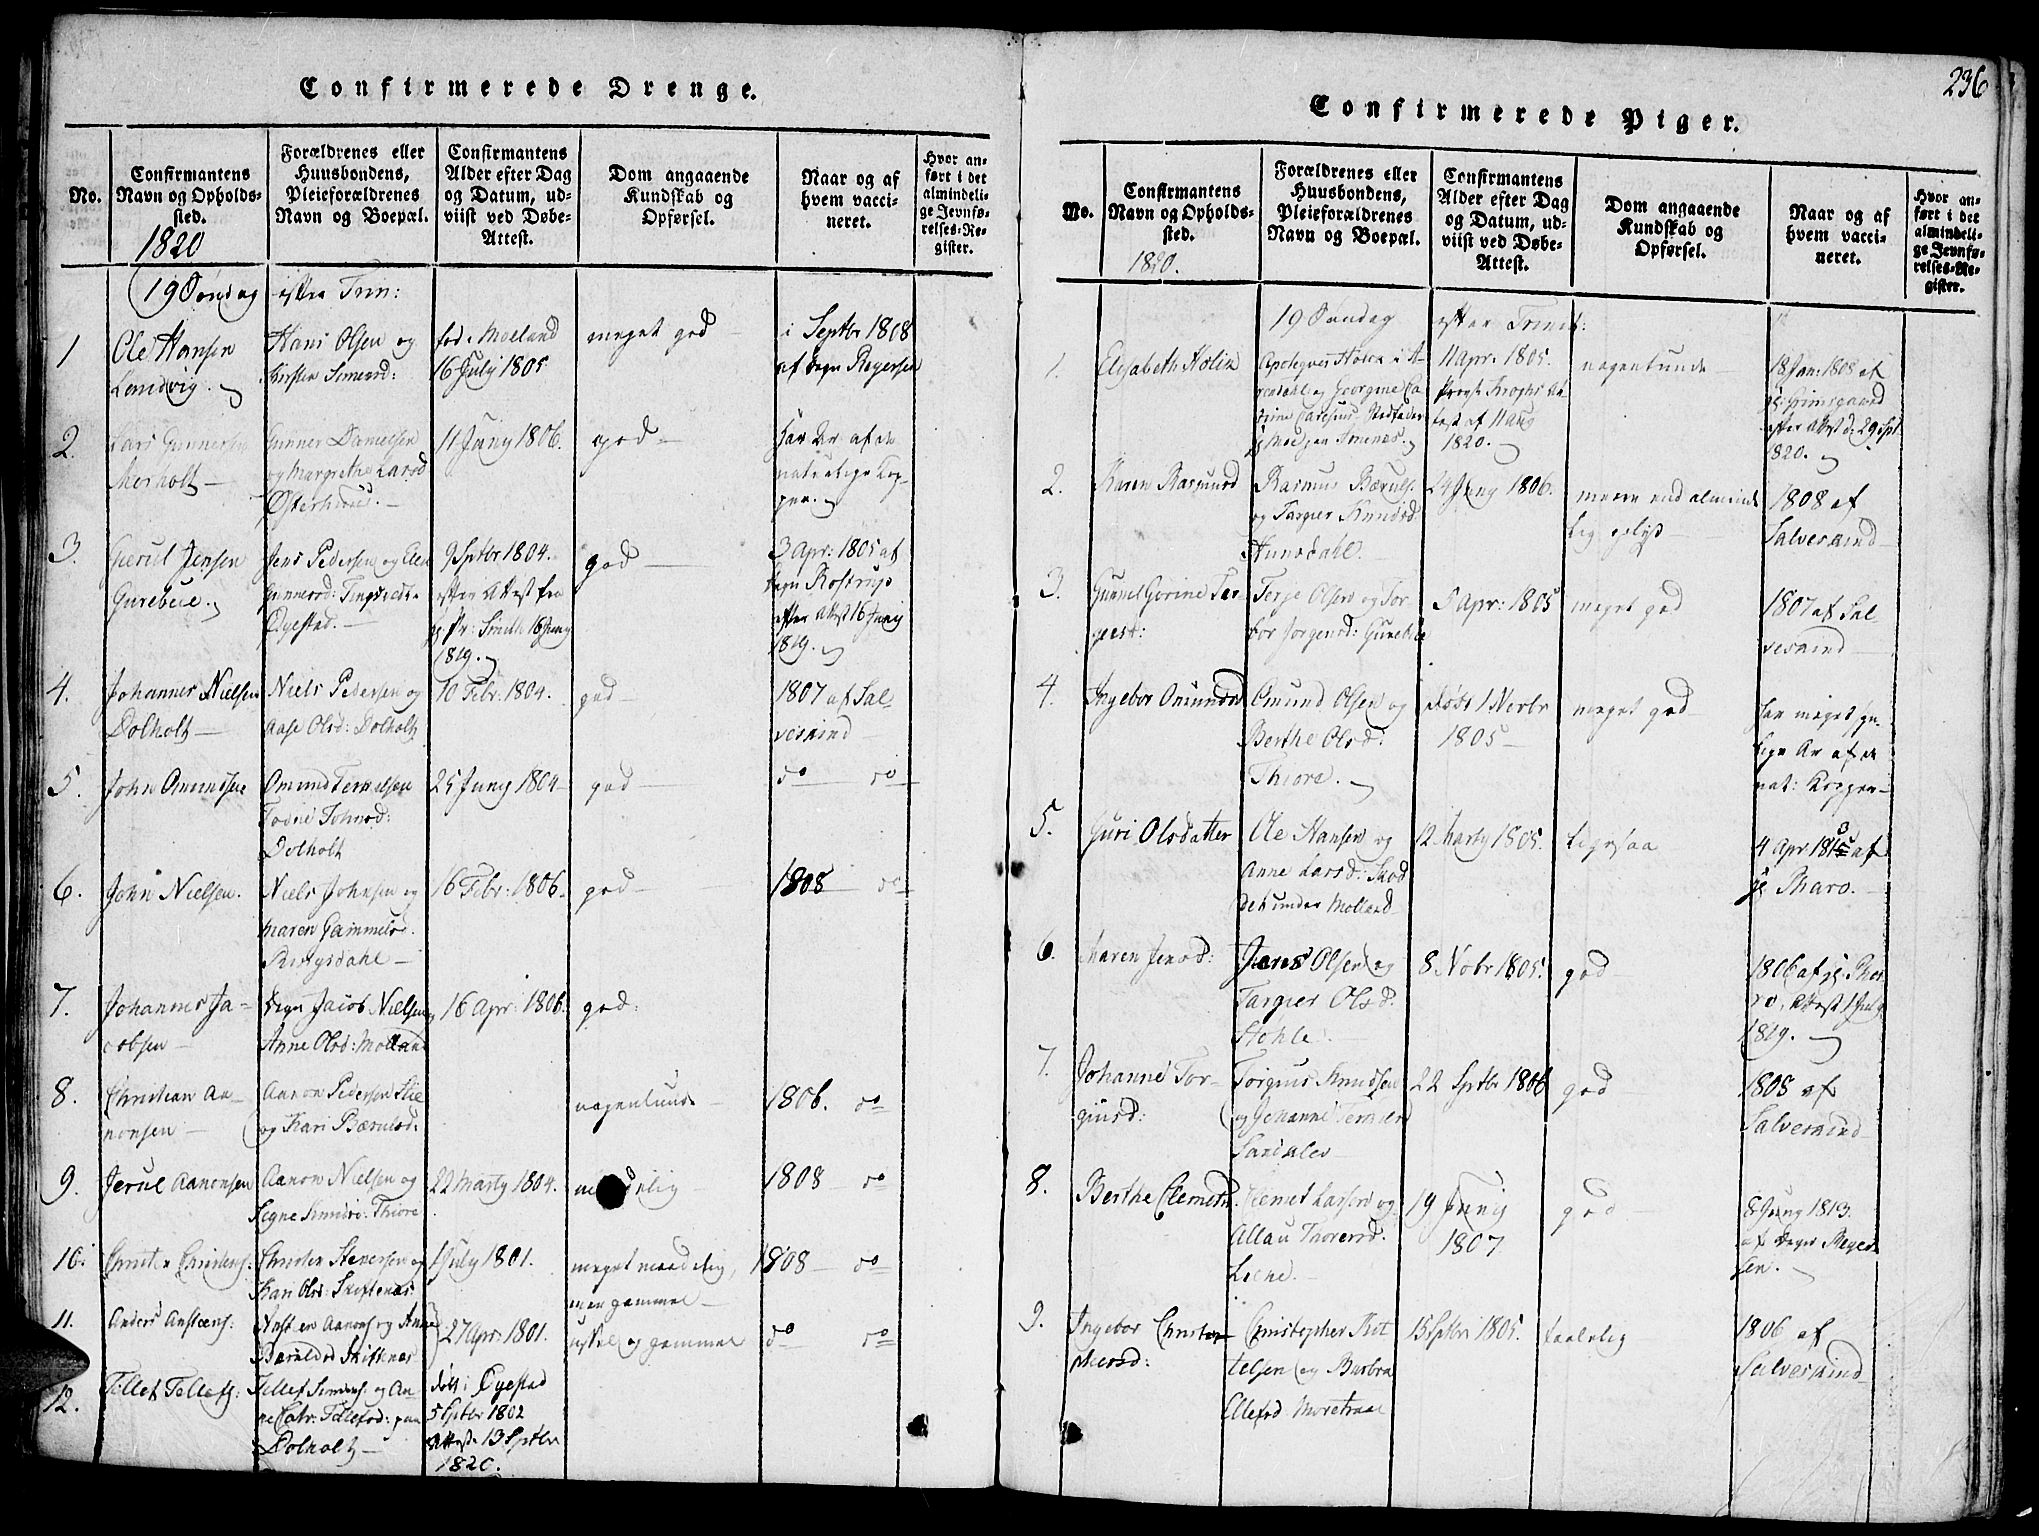 236
Confirmerede Drenge.
No.
Confirmantens
Navn og Opholds-
sted.
1820
Forældrenes eller
Huusbondens,
Pleieforældrenes
Navn og Boepæl.
Confirmantens
Alder efter Dag
og Datum, ud-
viist ved Døbe-
Attest.
Dom angaaende
Kundskab og
Opførsel.
Naar og af
hvem vacci-
neret.
Hvor an-
ført i det
almindeli-
ge Jevnfø-
relses-Re-
gister.
19 Søndag efter Trin:
1
Ole Hansen
Landvig.
Hans Olsen og
Kirsten Simensd:
fød i Moeland
16 July 1805
meget god
i Septbr 1808
af Degn Reyersen
2.
Lars Gunnersen
Merholt
Gunner Danielsen
og Margrethe Larsd
Østerhuus.
11 Juny 1806.
god
har Ar af de
naturlige Kop-
per.
3.
Gjerul Jensen
Gureboe.
Jens Pedersen og Elen
Gunnersd: Tingsvedt
Øyestad.
9 Sptbr 1804.
efter Attest fra
Smith 16 Juny
1819.
god
3 Apr: 1805 af
Degn Rostrup
efter Attest 16 Juny
1819.
4.
Johannes Nielsen
Dolholt
Niels Pedersen og
Aase Olsd: Dolholt
10 Febr: 1804.
god
1807 af Sal-
vesaind
5.
John Omundsen
Omund Terkelsen
Johnsd:
Dolholt
25 Juny 1804
god
do do
6.
John Nielsen.
Niels Johnsen og
Maren Gammelsd.
Rugsdahl
16 Febr: 1806.
god
1808 do
7.
Johannes Ja-
cobsen
Degn Jacob Nielsen
Anne Olsd: Molland
16 Apr: 1806.
god:
8.
Christian Aa-
nonsen
Aanon Pedersen Slie
og Kari Bærulsd.
nogenlunde
1806. do
9.
Jerul Aanonsen
Aanon Nielsen og
Signe Simdsd: Thiore
22 Marty 1804.
1808 do
10.
Christen Christens:
Christen Stevensen og
Kari Olsd: Skiftenæs
July 1801.
meget maadelig,
men gammel
1808 do
11.
Anders Ansteens:
Ansten Aanons og Anne
Bærulsd Skiftenæs
27 Apr: 1801.
uskel og gammel
do do
12.
Tellef Tellefs:
Tellef Simons: og An-
ne Catr: Tellefsd: paa
Dolholt
døbt i Øyestad
5 Sptbr 1802
Attest 13 Sptbr
1820.
Confirmerede Piger.
No.
Confirmantens
Navn og Opholds-
sted.
1820.
Forældrenes eller
Huusbondens,
Pleieforældrenes
Navn og Boepæl.
Confirmantens
Alder efter Dag
og Datum, ud-
viist ved Døbe-
Attest.
Dom angaaende
Kundskab og
Opførsel.
Naar og af
hvem vacci-
neret.
Hvor an-
ført i det
almindeli-
ge Jevnfø-
relses-Re-
gister.
19 Søndag efter Trinit:
1.
Elisabeth Holik
Apotequer Holck i A-
rendahl og Georgine Ca-
trine
11 Apr: 1805.
Provst Krophs At-
test af 11 Aug
1820.
nogenlunde
18 Jan: 1808 af
Grimsgaard
efter Attest d: 29 Spt
1820.
2.
Karen Rasmusd
Rasmus Bæruls:
og Targier Knudsd:
Hunsdahl.
24 Juny 1806.
mere end alminde-
lig oplyst
1808 af
Salvesaind
3.
Gunnil Gorine Ter-
gest:
Terje Olsen og Tor-
bor Jorgensd: Gurebo
5 Apr: 1805
meget god
1807 af Sal-
vesaind
4.
Ingebor Omundsd
Omund Olsen og
Berthe Olsd:
Thiore.
døbt 1 Novbr
1805
meget god
har meget syn-
lige Ar af de
nat: Kopper
5.
Guri Olsdatter
Ole Hansen og
Anne Larsd:
under Molland
12 Marty 1805.
ligesaa
4 Apr af
Pharo.
6.
Maren Jensd:
Jens Olsen og
Targier Olsd:
Stehle.
8 Nobr 1805.
god
1806 af Pha-
ro, Attest 1 July
1819.
7.
Johanne Tor-
giusd:
Torgius Knudsen
og Johanne
Sandalen
22 Sptbr 1806
god
1808 af
Salvesaind
8.
Berthe Clemetsd
Clemet Larsen og
Allau Thorersd.
Liene.
19 Juny
1807
god
8 Juny 1813.
af Degn Reyer-
sen.
9.
Ingebor Christo-
phersd:
Christopher Ket-
telsen og Barbra
Ellefsd Moretraae
15 Sptbr 1805.
taalelig
1806 af
Salvesaind